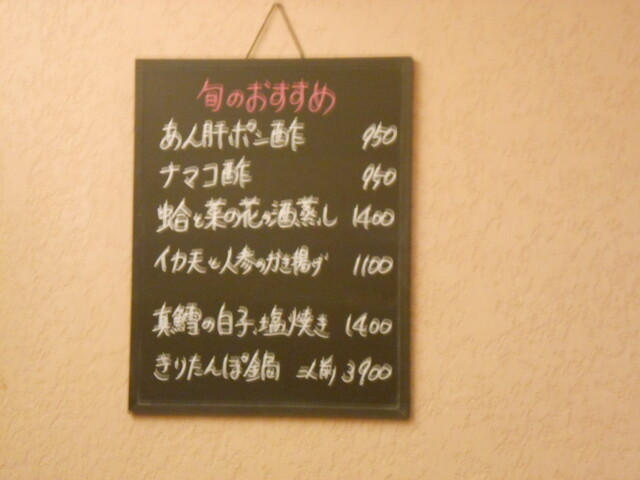 旬のおすすめ
あん肝ポン酢 950
ナマコ酢 950
蛤と菜の花の酒蒸し 1400
イカ天と人参のかき揚げ 1100
真鱈の白子、塩焼き 1400
きりたんぽ鍋 二人前 3900